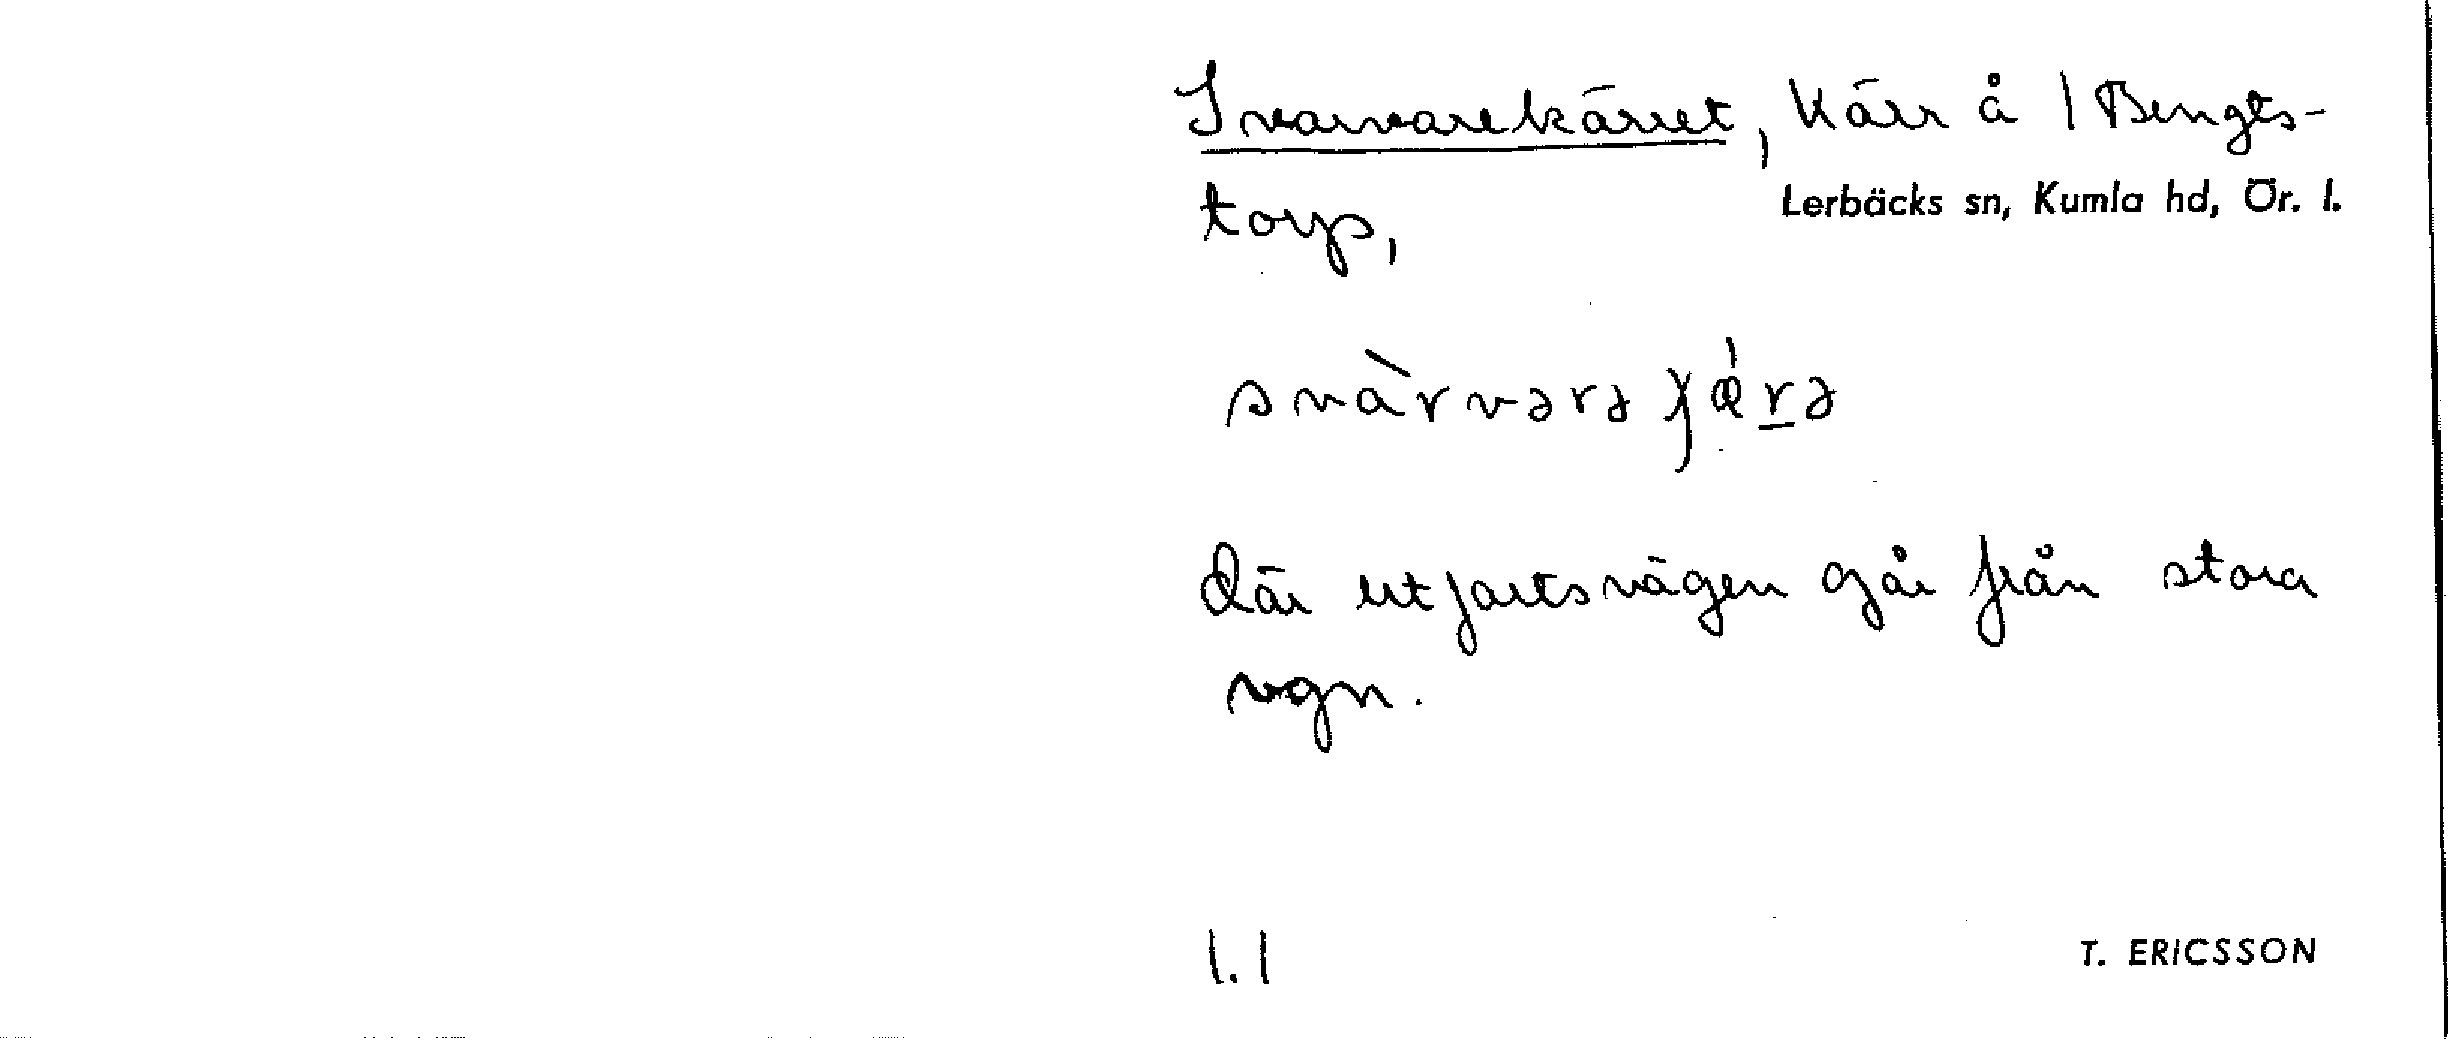 Svarvarekärret, Kärr å 1 Bengts-
Lerbäcks sn, Kumla hd, Ör. l.
torp,
svàrvərə
Där utfartsvägen går från stora
vgn.
1.1
T. ERICSSON